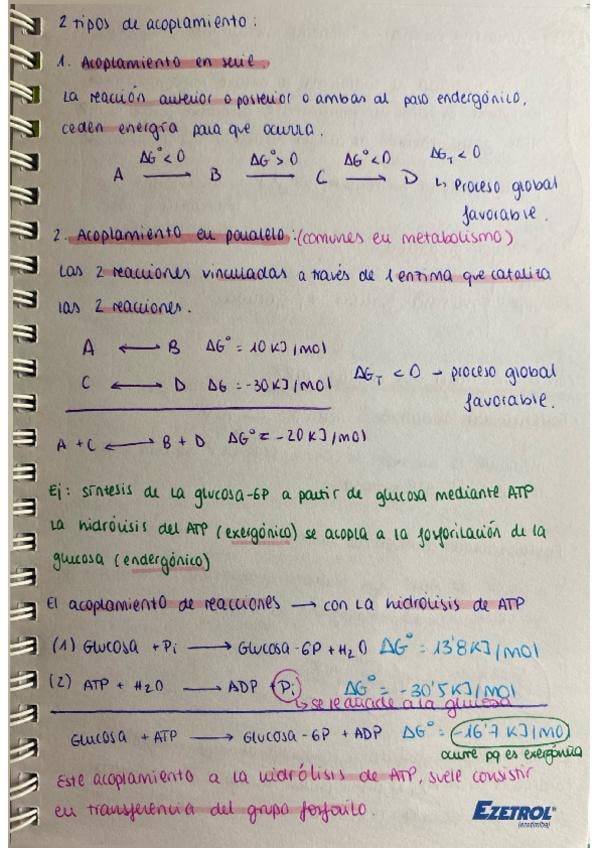 2 tipos de acoplamiento:
1. Acoplamiento en serie.
La reacción anterior o posterior o ambas al paso endergónico,
ceden energía para que ocurra.
ΔG°<0 ΔG°>0 ΔG°<0 ΔG_T<0
A → B → C → D ↳ Proceso global
favorable.
2. Acoplamiento en paralelo: (comunes en metabolismo)
Las 2 reacciones vinculadas a través de 1 enzima que cataliza
las 2 reacciones.
A ↔ B ΔG° = 10 KJ/mol
C ↔ D ΔG = -30 KJ/mol ΔG_T < 0 → proceso global
favorable.
A + C ↔ B + D ΔG° = -20 KJ/mol
Ej: síntesis de la glucosa-6P a partir de glucosa mediante ATP
La hidrólisis del ATP (exergónico) se acopla a la fosforilación de la
glucosa (endergónico)
El acoplamiento de reacciones → con la hidrólisis de ATP
(1) Glucosa + Pi → Glucosa-6P + H₂O ΔG° = 13'8 KJ/mol
(2) ATP + H₂O → ADP + Pi ΔG° = -30'5 KJ/mol
↳ se le añade a la glucosa
Glucosa + ATP → Glucosa-6P + ADP ΔG° = -16'7 KJ/mo
ocurre pq es exergónica
Este acoplamiento a la hidrólisis de ATP, suele consistir
en transferencia del grupo fosforilo.
EZETROL®
(ezetimiba)